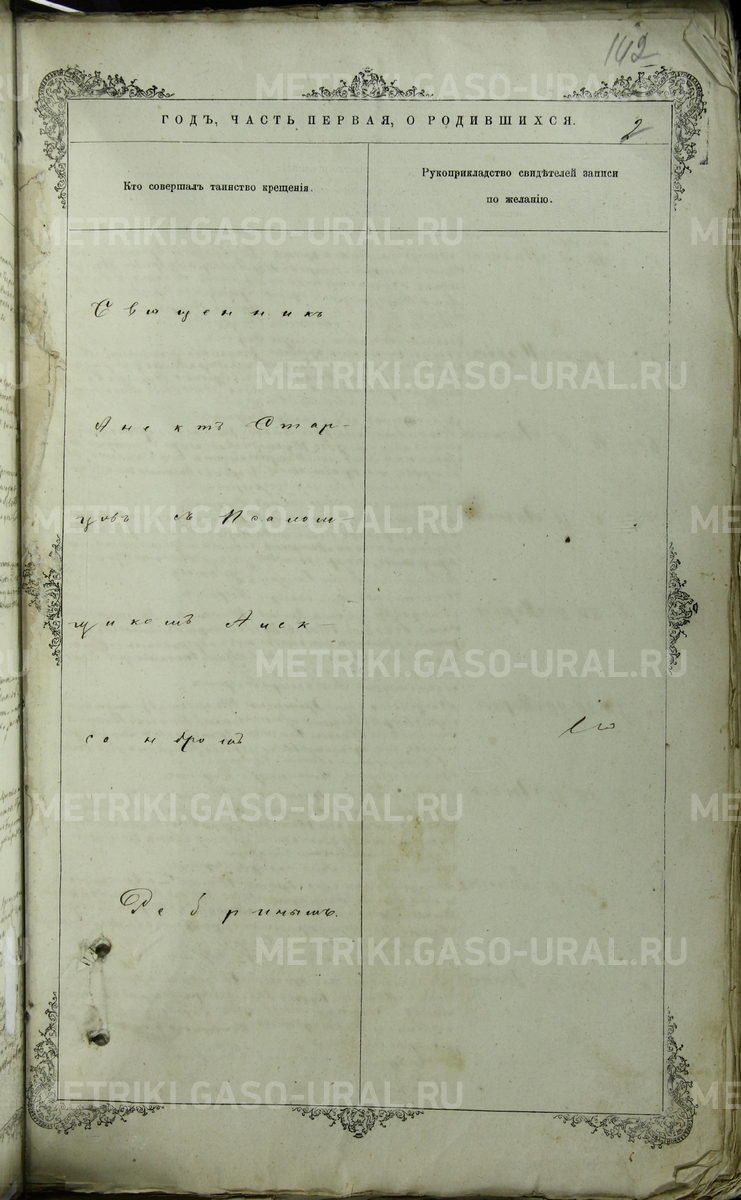 142
ГОДЪ, ЧАСТЬ ПЕРВАЯ, О РОДИВШИХСЯ.
2
Кто совершалъ таинство крещенія.
Рукоприкладство свидѣтелей записи
по желанію.
Священникъ
Старцовъ съ Псалом-
щикомъ Алек-
сандромъ
Ребринымъ.
METRIKI.GASO-URAL.RU